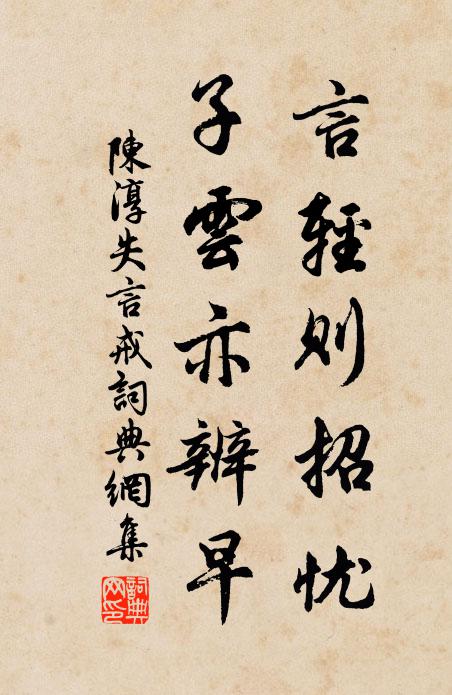 言輕則招忧
子雲亦辨早
陳淳失言戒詞典網集
詞典网印